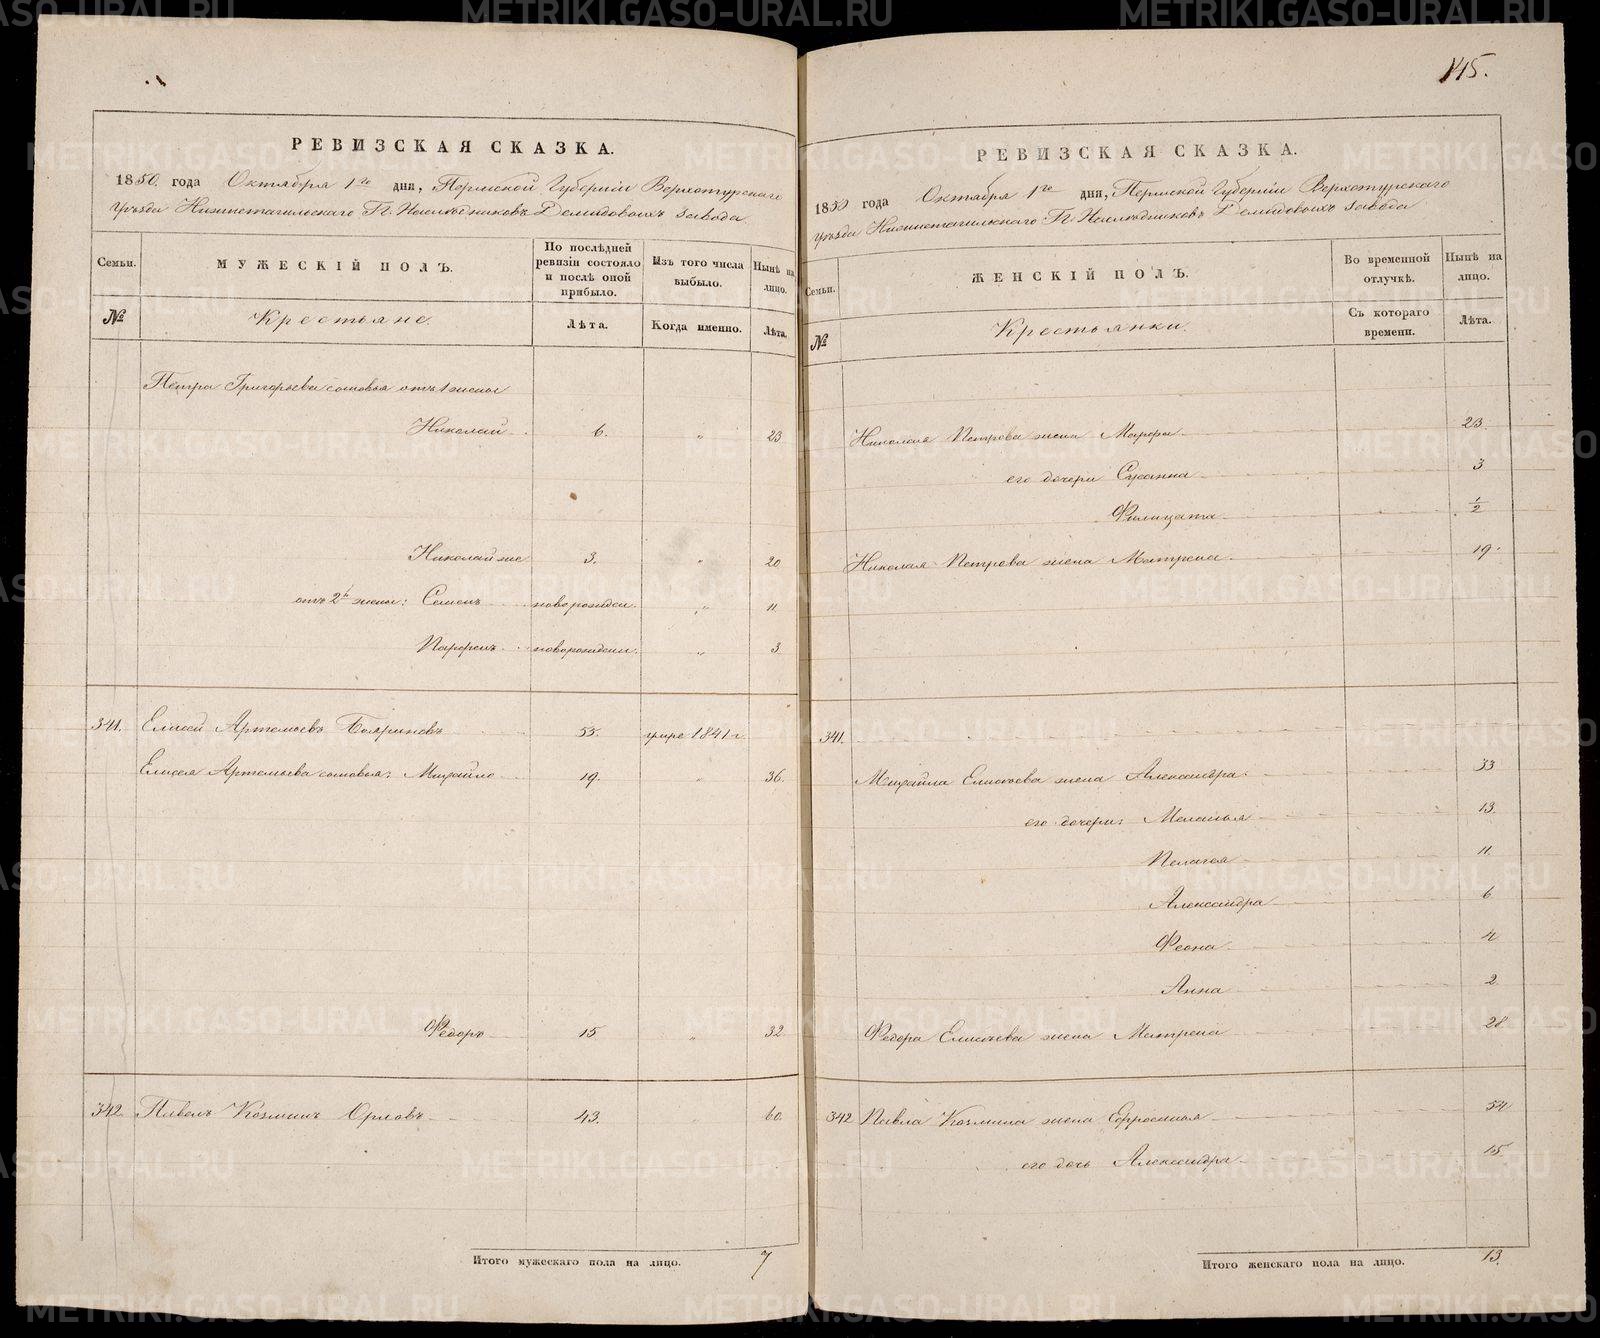 РЕВИЗСКАЯ СКАЗКА.
1850. года Октября 1го дня, Пермской Губерніи Верхотурскаго
уѣзда Нижнетагильскаго Гг. Наслѣдниковъ Демидовыхъ завода
Семьи.
МУЖЕСКІЙ ПОЛЪ.
По послѣдней ревизіи состояло и послѣ оной прибыло.
Изъ того числа выбыло.
Нынѣ на лицо.
№
Крестьяне.
Лѣта.
Когда именно.
Лѣта.
Петра Григорьева сыновья отъ 1 жены
Николай 6. „ 23
Николай же 3. „ 20
отъ 2й жены: Семенъ новорожден. „ 11
Парфенъ новорожден. „ 3
341. Елисей Артемьевъ Бояриновъ 55. умре 1841 г.
Елисея Артемьева сыновья: Михайло 19. „ 36
Федоръ 15 „ 32
342 Павелъ Козминъ Орловъ 43. „ 60
Итого мужескаго пола на лицо. 7
145.
РЕВИЗСКАЯ СКАЗКА.
1850 года Октября 1го дня, Пермской Губерніи Верхотурскаго
уѣзда Нижнетагильскаго Гг. Наслѣдниковъ Демидовыхъ завода
Семьи.
ЖЕНСКІЙ ПОЛЪ.
Во временной отлучкѣ.
Нынѣ на лицо.
№
Крестьянки.
Съ котораго времени.
Лѣта.
Николая Петрова жена Марфа 23.
его дочери Сусанна 3
Филицата 1/2
Николая Петрова жена Матрена 19
341.
Михайла Елисѣева жена Александра 33
его дочери: Меланья 13
Пелагея 11
Александра 6
Феона 4
Анна 2
Федора Елисѣева жена Матрена 28
342 Павла Козмина жена Ефросинья 54
его дочь Александра 15
Итого женскаго пола на лицо. 13
METRIKI.GASO-URAL.RU